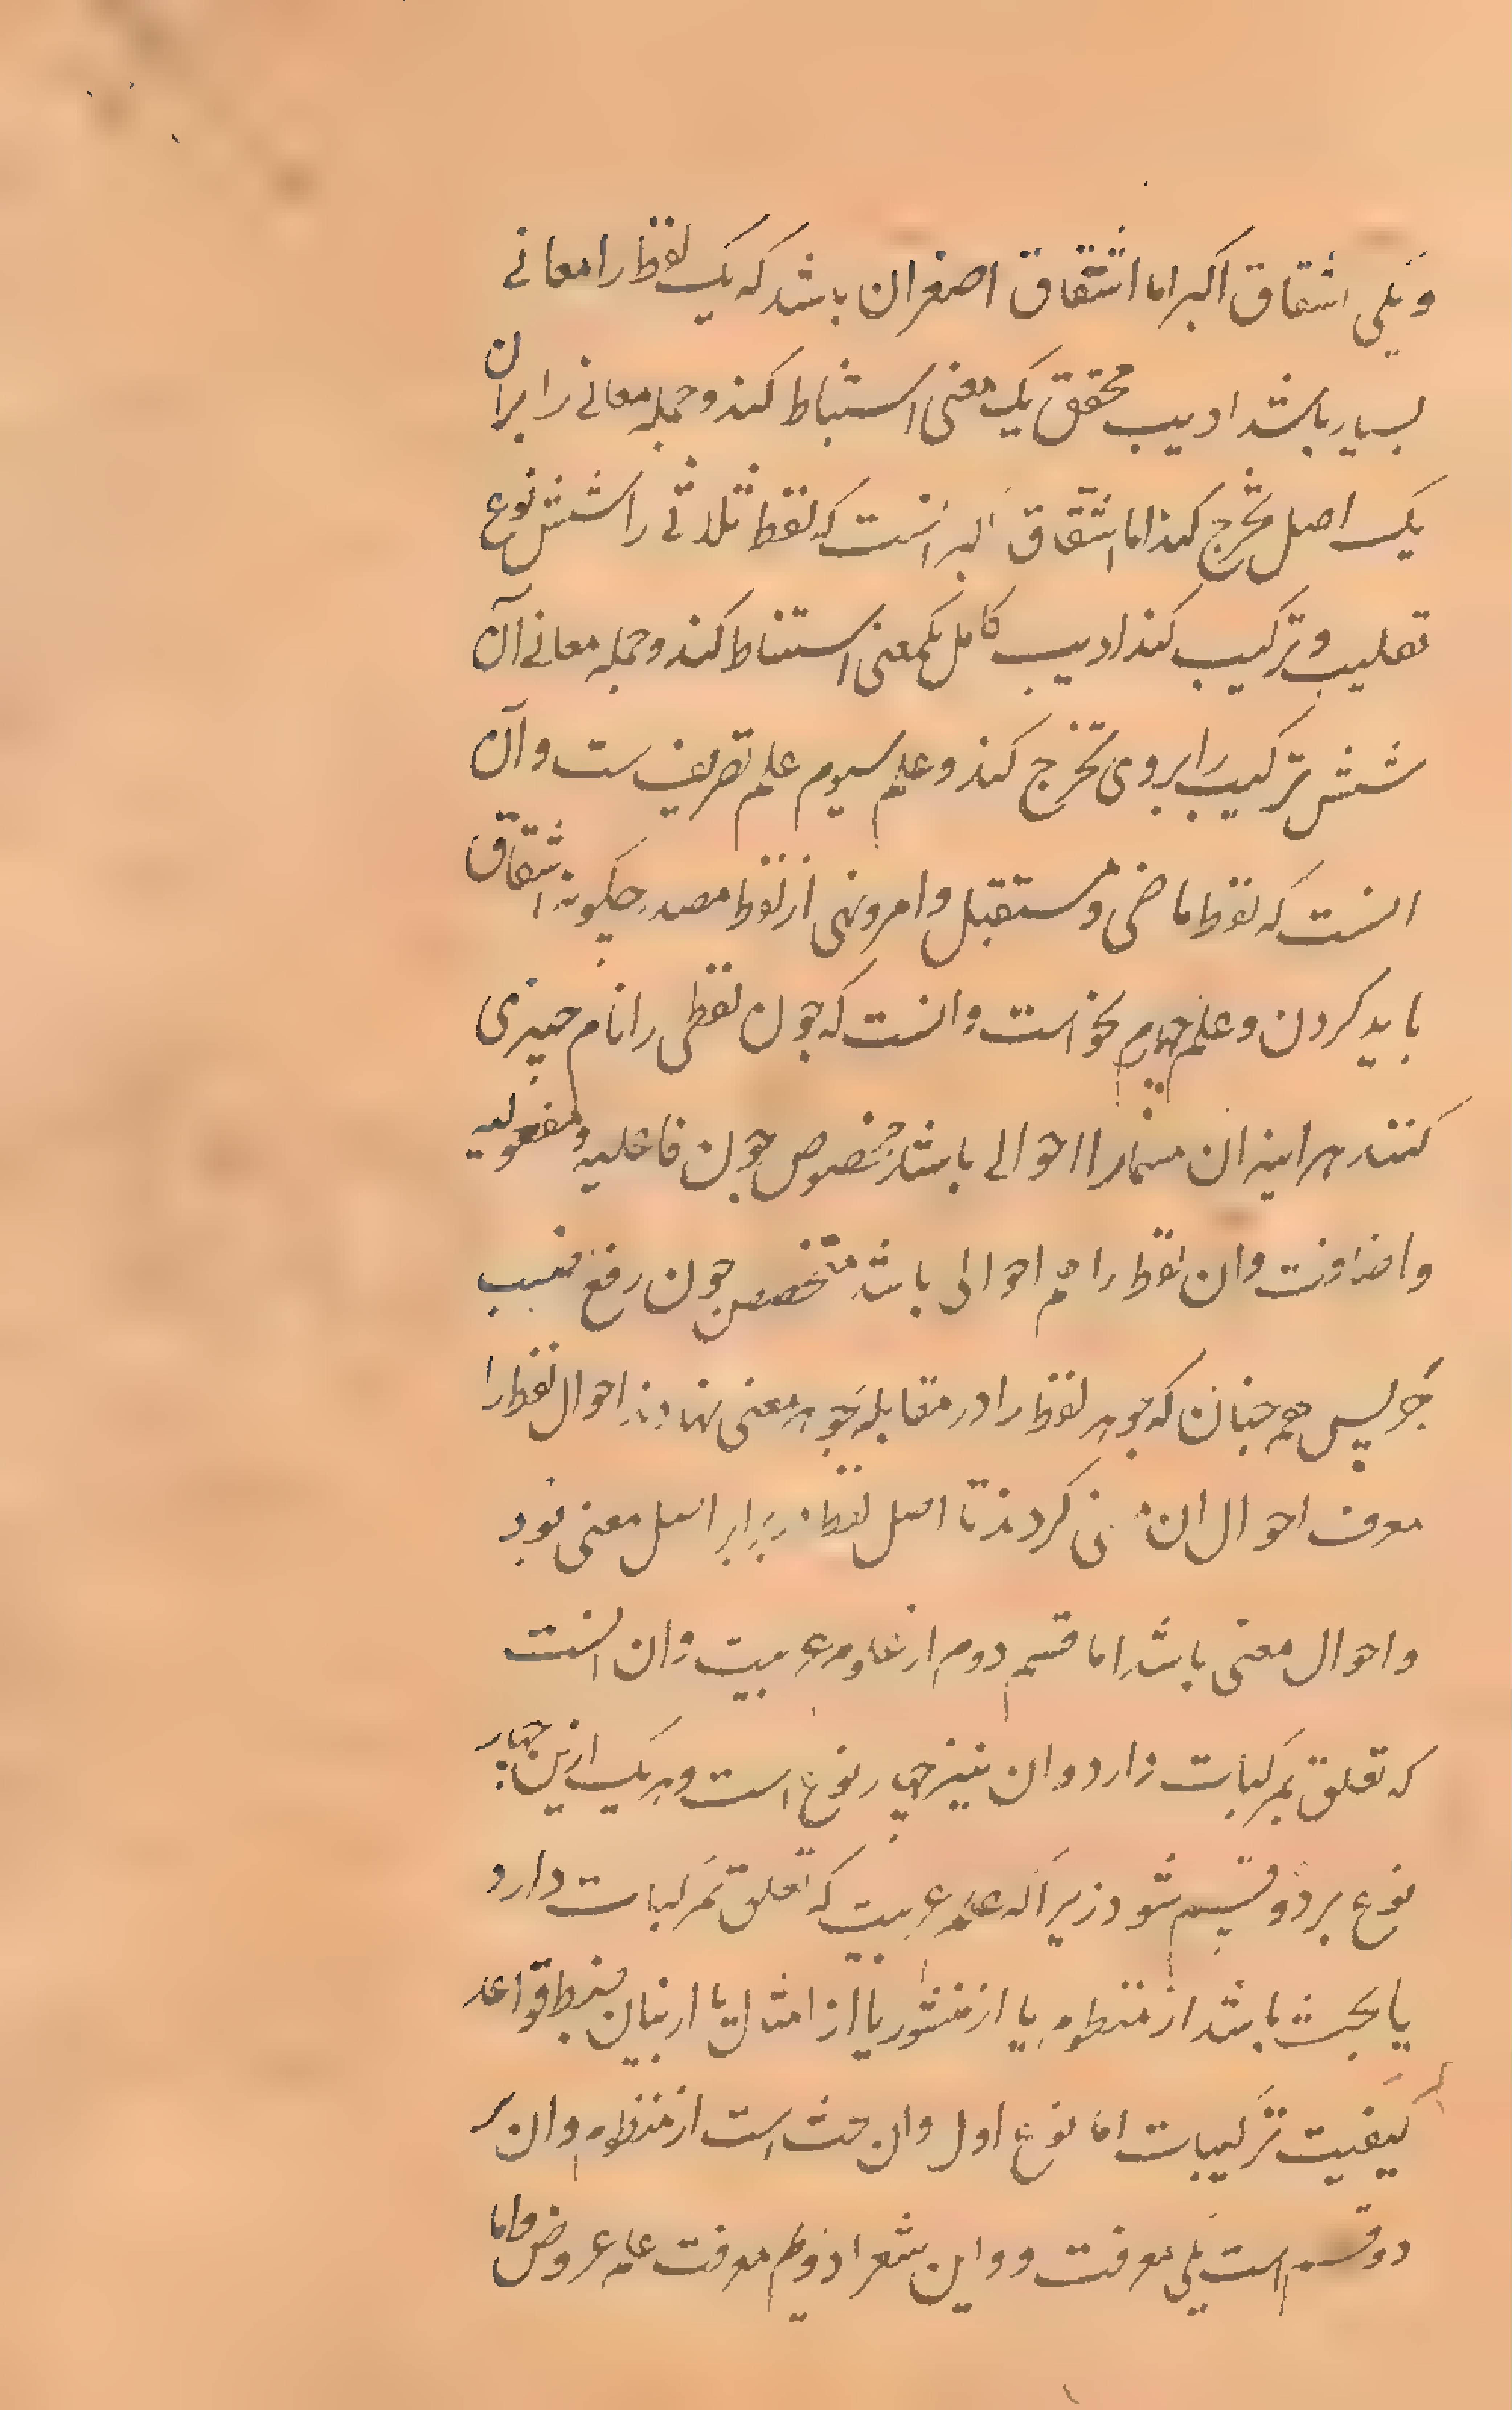 و یکی اشتقاق اکبر اما اشتقاق اصغر ان باشد که یک لفظ را معانی
بسیار باشد ادیب محقق یک معنی استنباط کند و جمله معانی را بران
یک اصل تخرج کند اما اشتقاق اکبر انست که لفظ ثلاثی را شش نوع
تقلیب و ترکیب کند ادیب کامل یکمعنی استنباط کند و جمله معانی آن
شش ترکیب را بروی تخرج کند و علم سیوم علم تصریف ست و آن
انست که لفظ ماضی و مستقبل و امر و نهی از لفظ مصدر چکونه اشتقاق
باید کردن و علم چهارم نحو است و انست که چون لفظی را نام چیزی
کنند هر اینه ان مسما را احوالی باشد مخصوص چون فاعلیه و مفعولیه
و اضافت و ان لفظ را هم احوالی باشد متخصص چون رفع نصب
جر پس همچنان که جوهر لفظ را در مقابله جوهر معنی نهادند احوال لفظ را
معرف احوال ان کردند تا اصل لفظ برابر اصل معنی بود
و احوال معنی باشد اما قسم دوم از علوم عربیت و ان انست
که تعلق بمرکبات دارد و ان نیز چهار نوع است و هر یک ازین چهار
نوع بر دو قسم شود زیرا که علم عربیت که تعلق بمرکبات دارد
یا بحث باشد از منظوم یا از منثور یا از امثال یا از بیان ضبط قواعد
کیفیت ترکیبات اما نوع اول و ان بحث است از منظوم و ان بر
دو قسم است یکی معرفت دواین شعرا دوم معرفت علم عروض و اما